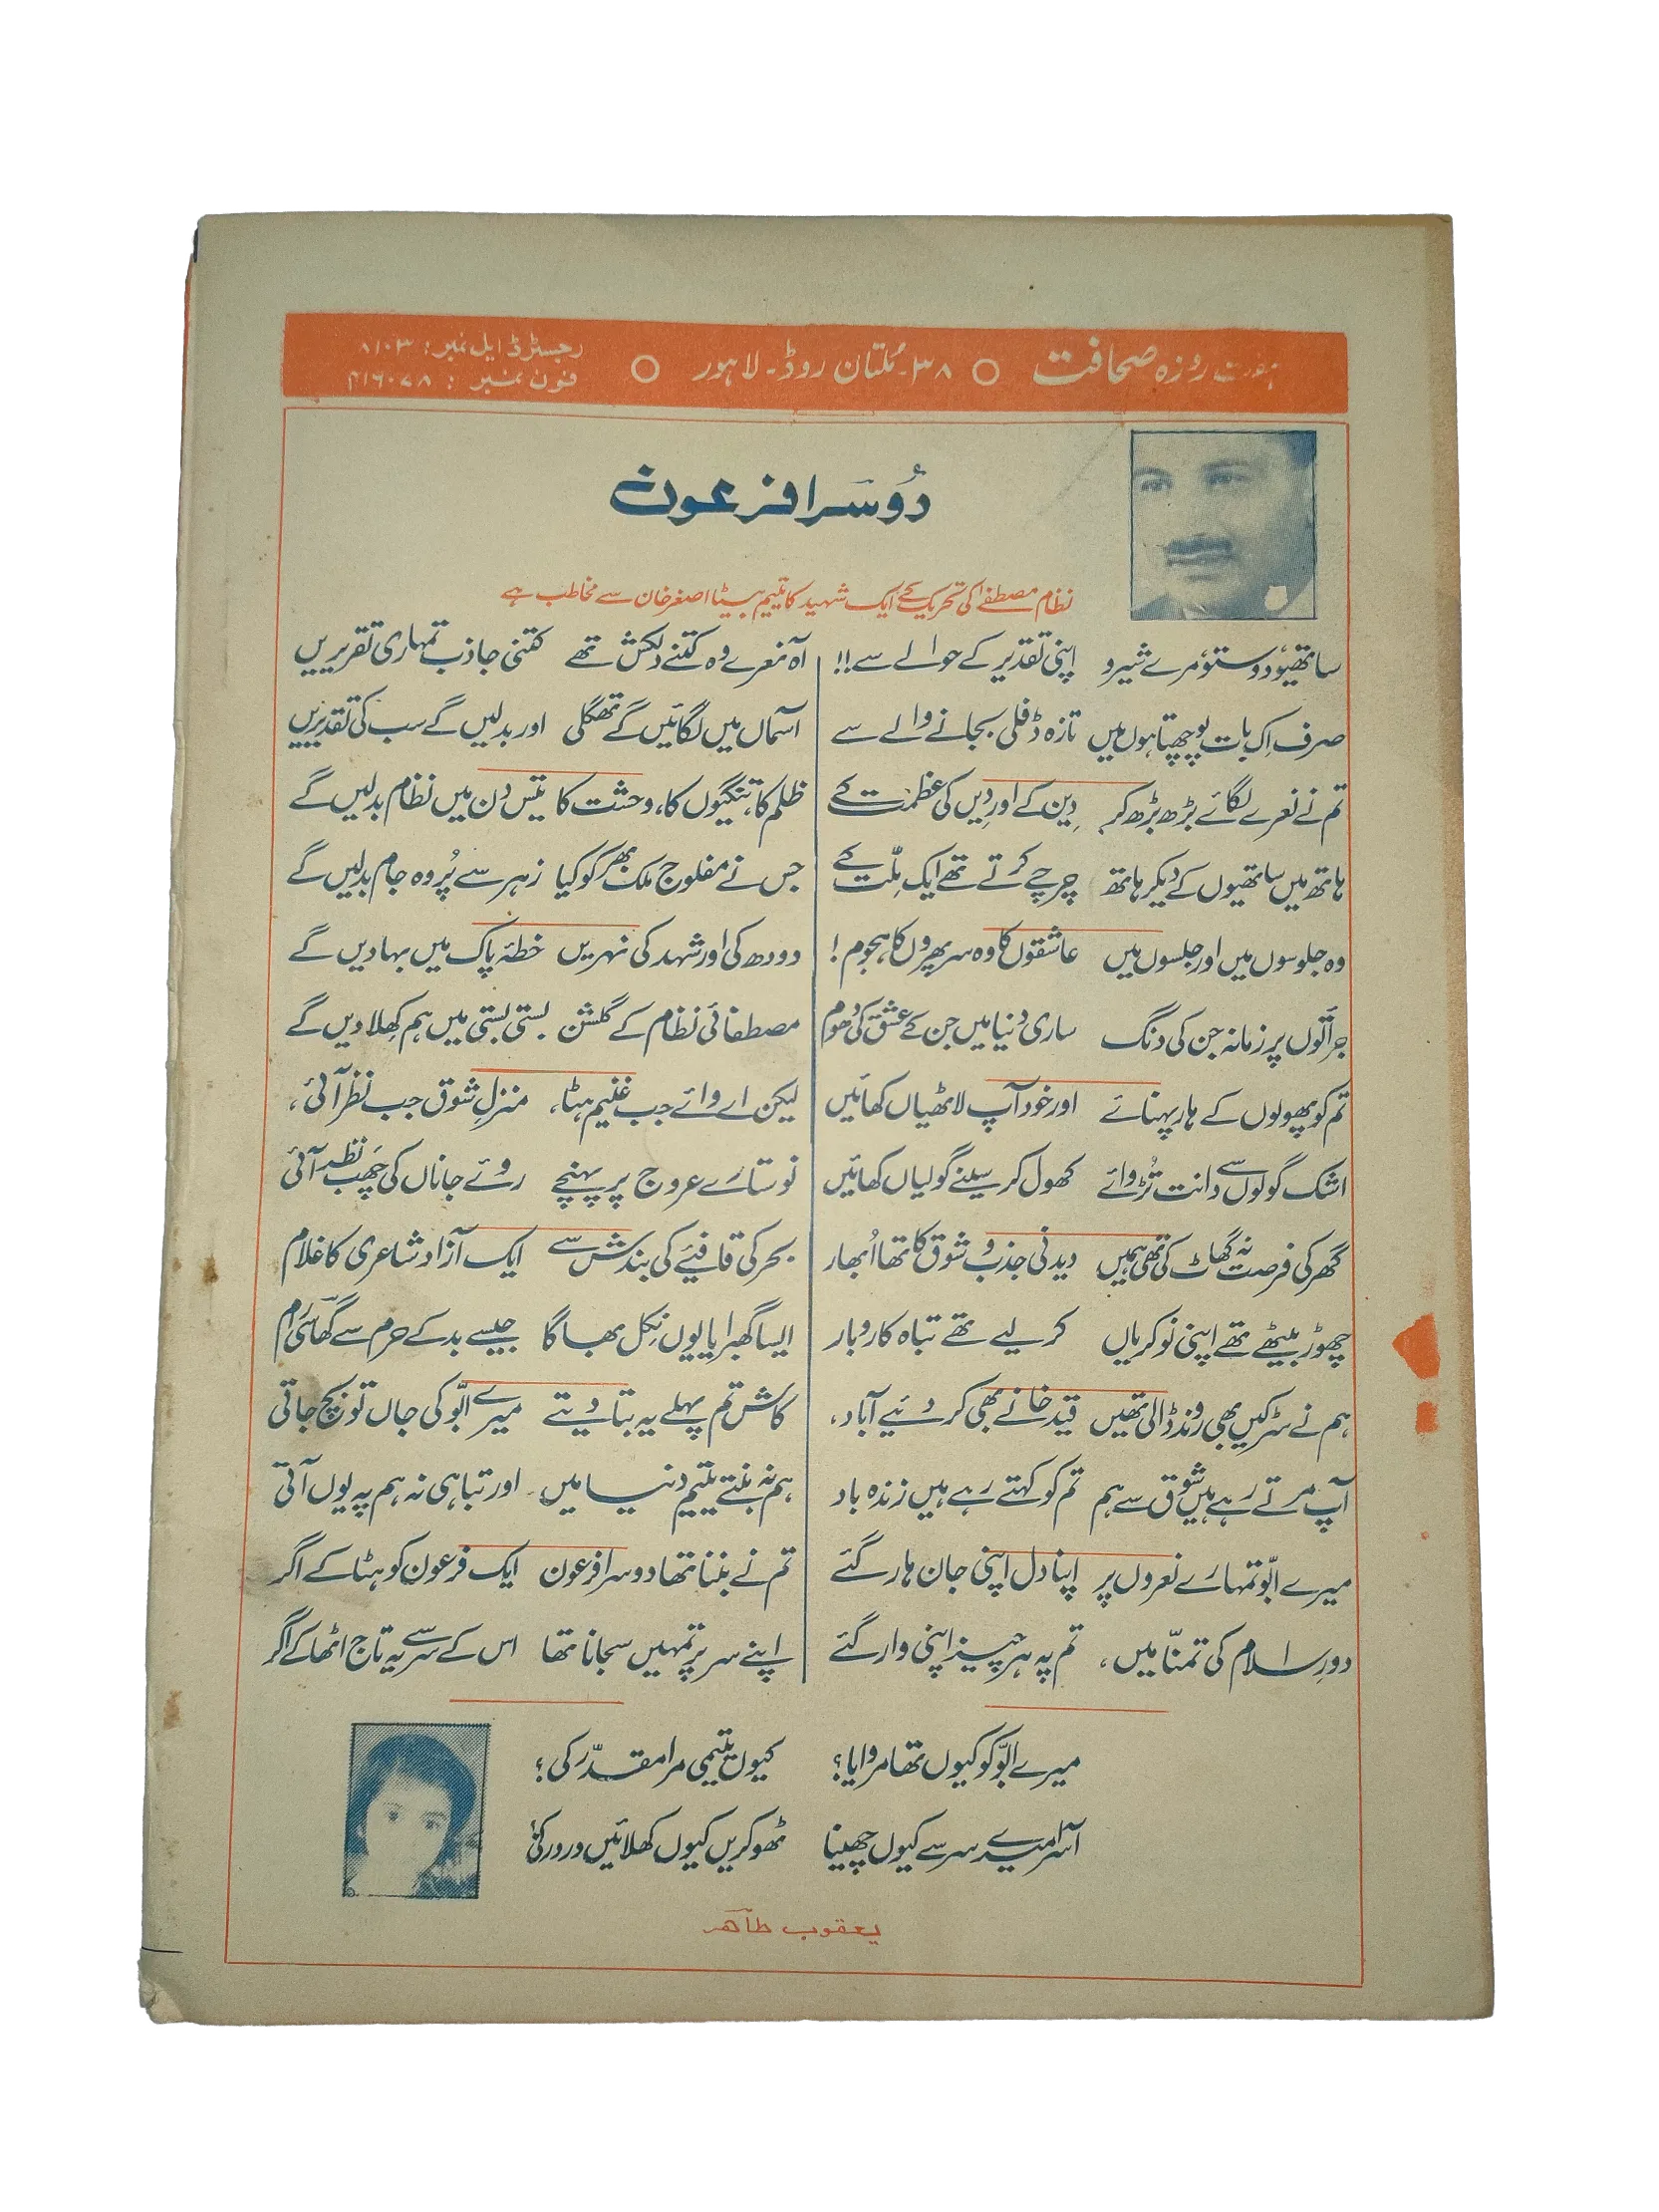 ہفت روزہ صحافت ○ ۳۸۔ ملتان روڈ۔ لاہور ○ رجسٹرڈ ایل نمبر: ۸۱۰۳
فون نمبر :
دُوسرا فرعون
نظام مصطفےٰ کی تحریک کے ایک شہید کا یتیم بیٹا اصغر خان سے مخاطب ہے
ساتھیو، دوستو، مرے شیرو اپنی تقدیر کے حوالے سے!!
صرف اِک بات پوچھتا ہوں میں تازہ ڈفلی بجانے والے سے
تم نے نعرے لگائے بڑھ بڑھ کر دِین کے اور دِیں کی عظمت کے
ہاتھ میں ساتھیوں کے دیکر ہاتھ چرچے کرتے تھے ایک مِلّت کے
وہ جلوسوں میں اور جلسوں میں عاشقوں کا وہ سر پھروں کا ہجوم!
جراتوں پر زمانہ جن کی دنگ ساری دُنیا میں جن کے عشق کی دھوم
تم کو پھولوں کے ہار پہنائے اور خود آپ لاٹھیاں کھائیں
اشک گولوں سے دانت تُڑوائے کھول کر سینے گولیاں کھائیں
گھر کی فرصت نہ گھاٹ کی تھی ہمیں دیدنی جذب و شوق کا تھا اُبھار
چھوڑ بیٹھے تھے اپنی نوکریاں کر لیے تھے تباہ کاروبار
ہم نے سڑکیں بھی روند ڈالی تھیں قید خانے بھی کر دئیے آباد،
آپ مرتے رہے ہیں شوق سے ہم تم کو کہتے رہے ہیں زندہ باد
میرے ابّو تمہارے نعروں پر اپنا دل اپنی جان ہار گئے
دورِ اسلام کی تمنّا میں، تم پہ ہر چیز اپنی وار گئے
آہ نعرے وہ کتنے دلکش تھے کتنی جاذب تمہاری تقریریں
آسماں میں لگائیں گے تھگلی اور بدلیں گے سب کی تقدیریں
ظلم کا، تنگیوں کا، وحشت کا تیس دن میں نظام بدلیں گے
جس نے مفلوج ملک بھر کو کیا زہر سے پُر وہ جام بدلیں گے
دودھ کی اور شہد کی نہریں خطۂ پاک میں بہا دیں گے
مصطفائی نظام کے گلشن بستی بستی میں ہم کھلا دیں گے
لیکن اے وائے جب غنیم ہٹا، منزلِ شوق جب نظر آئی،
نو ستارے عروج پر پہنچے روئے جاناں کی چھب نظر آئی
بحر کی قافیئے کی بندش سے ایک آزاد شاعری کا غلام
ایسا گھبرایا یوں نکل بھاگا جیسے بدکے حرم سے گھاسی رام
کاش تم پہلے یہ بتا دیتے میرے ابّو کی جاں تو بچ جاتی
ہم نہ بنتے یتیم دنیا میں۔ اور تباہی نہ ہم پہ یوں آتی
تم نے بننا تھا دوسرا فرعون ایک فرعون کو ہٹا کے اگر
اپنے سر پر تمہیں سجانا تھا اس کے سر سے یہ تاج اٹھا کے اگر
میرے ابّو کو کیوں تھا مروایا؟ کیوں یتیمی مرا مقدّر کی؟
آسرا میرے سر سے کیوں چھینا ٹھوکریں کیوں کھلائیں در در کی؟
یعقوب طاہر